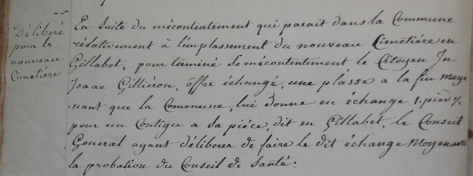 Délibéré
pour le
nouveau
Cimetière
En suite du mécontentement qui parait dans la Commune
relativement à l'implassement du nouveau Cimetière en
Gillabet, pour taminé le mécontentement le Citoyen Jn
Isaac Gilliéron, offre échangé, une plasse a la fin moye
nant que la Commune, lui donne en échange 1. pièe
pour un Contigue a sa pièce, dit en Gillabet, le Conseil
General ayant déliberer de faire le dit échange Moyenant
la probation du Conseil de Santé.